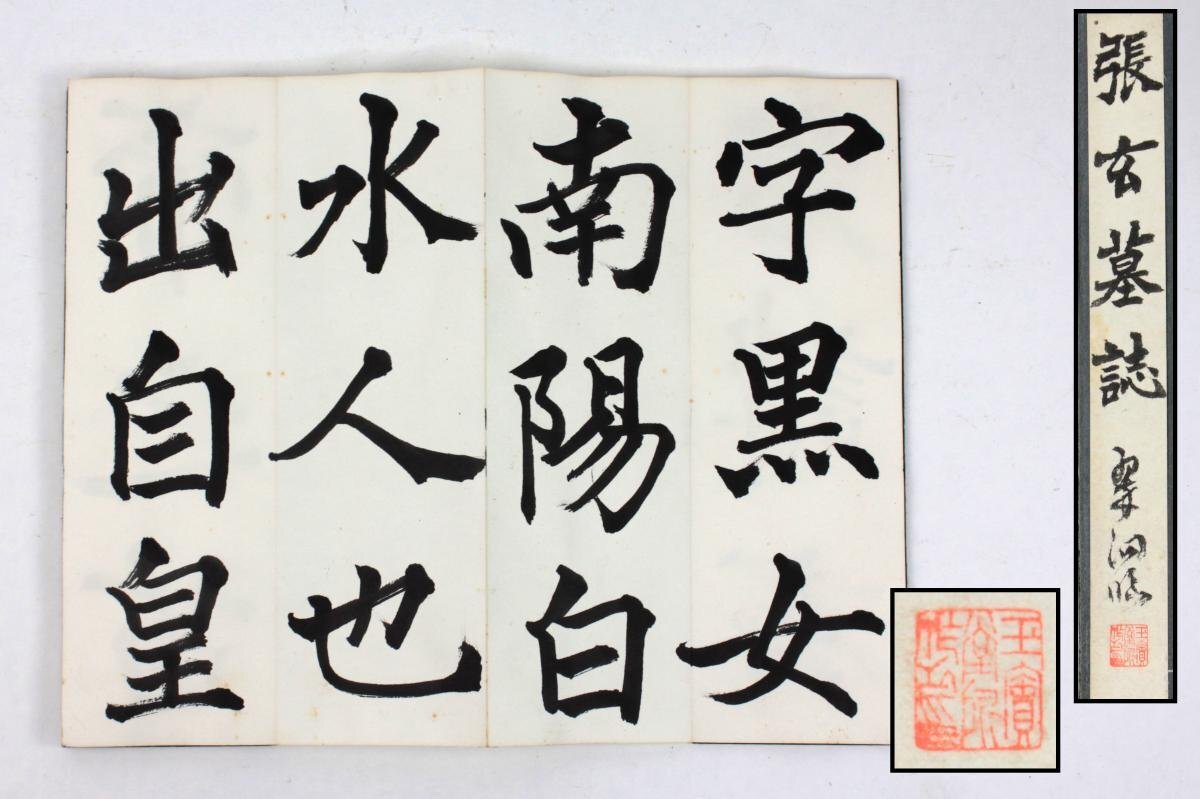 字黒女
南陽白
水人也
出自皇
張玄墓誌